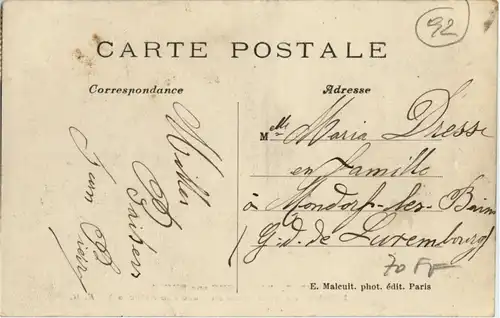 92
CARTE POSTALE
Correspondance
Adresse
Milles
Baisers
Jean Pierre
Melle Maria Dresse
en famille
à Mondorf-les-Bains
G.d. de Luxembourg
70 FF
E. Malcuit. phot. édit. Paris